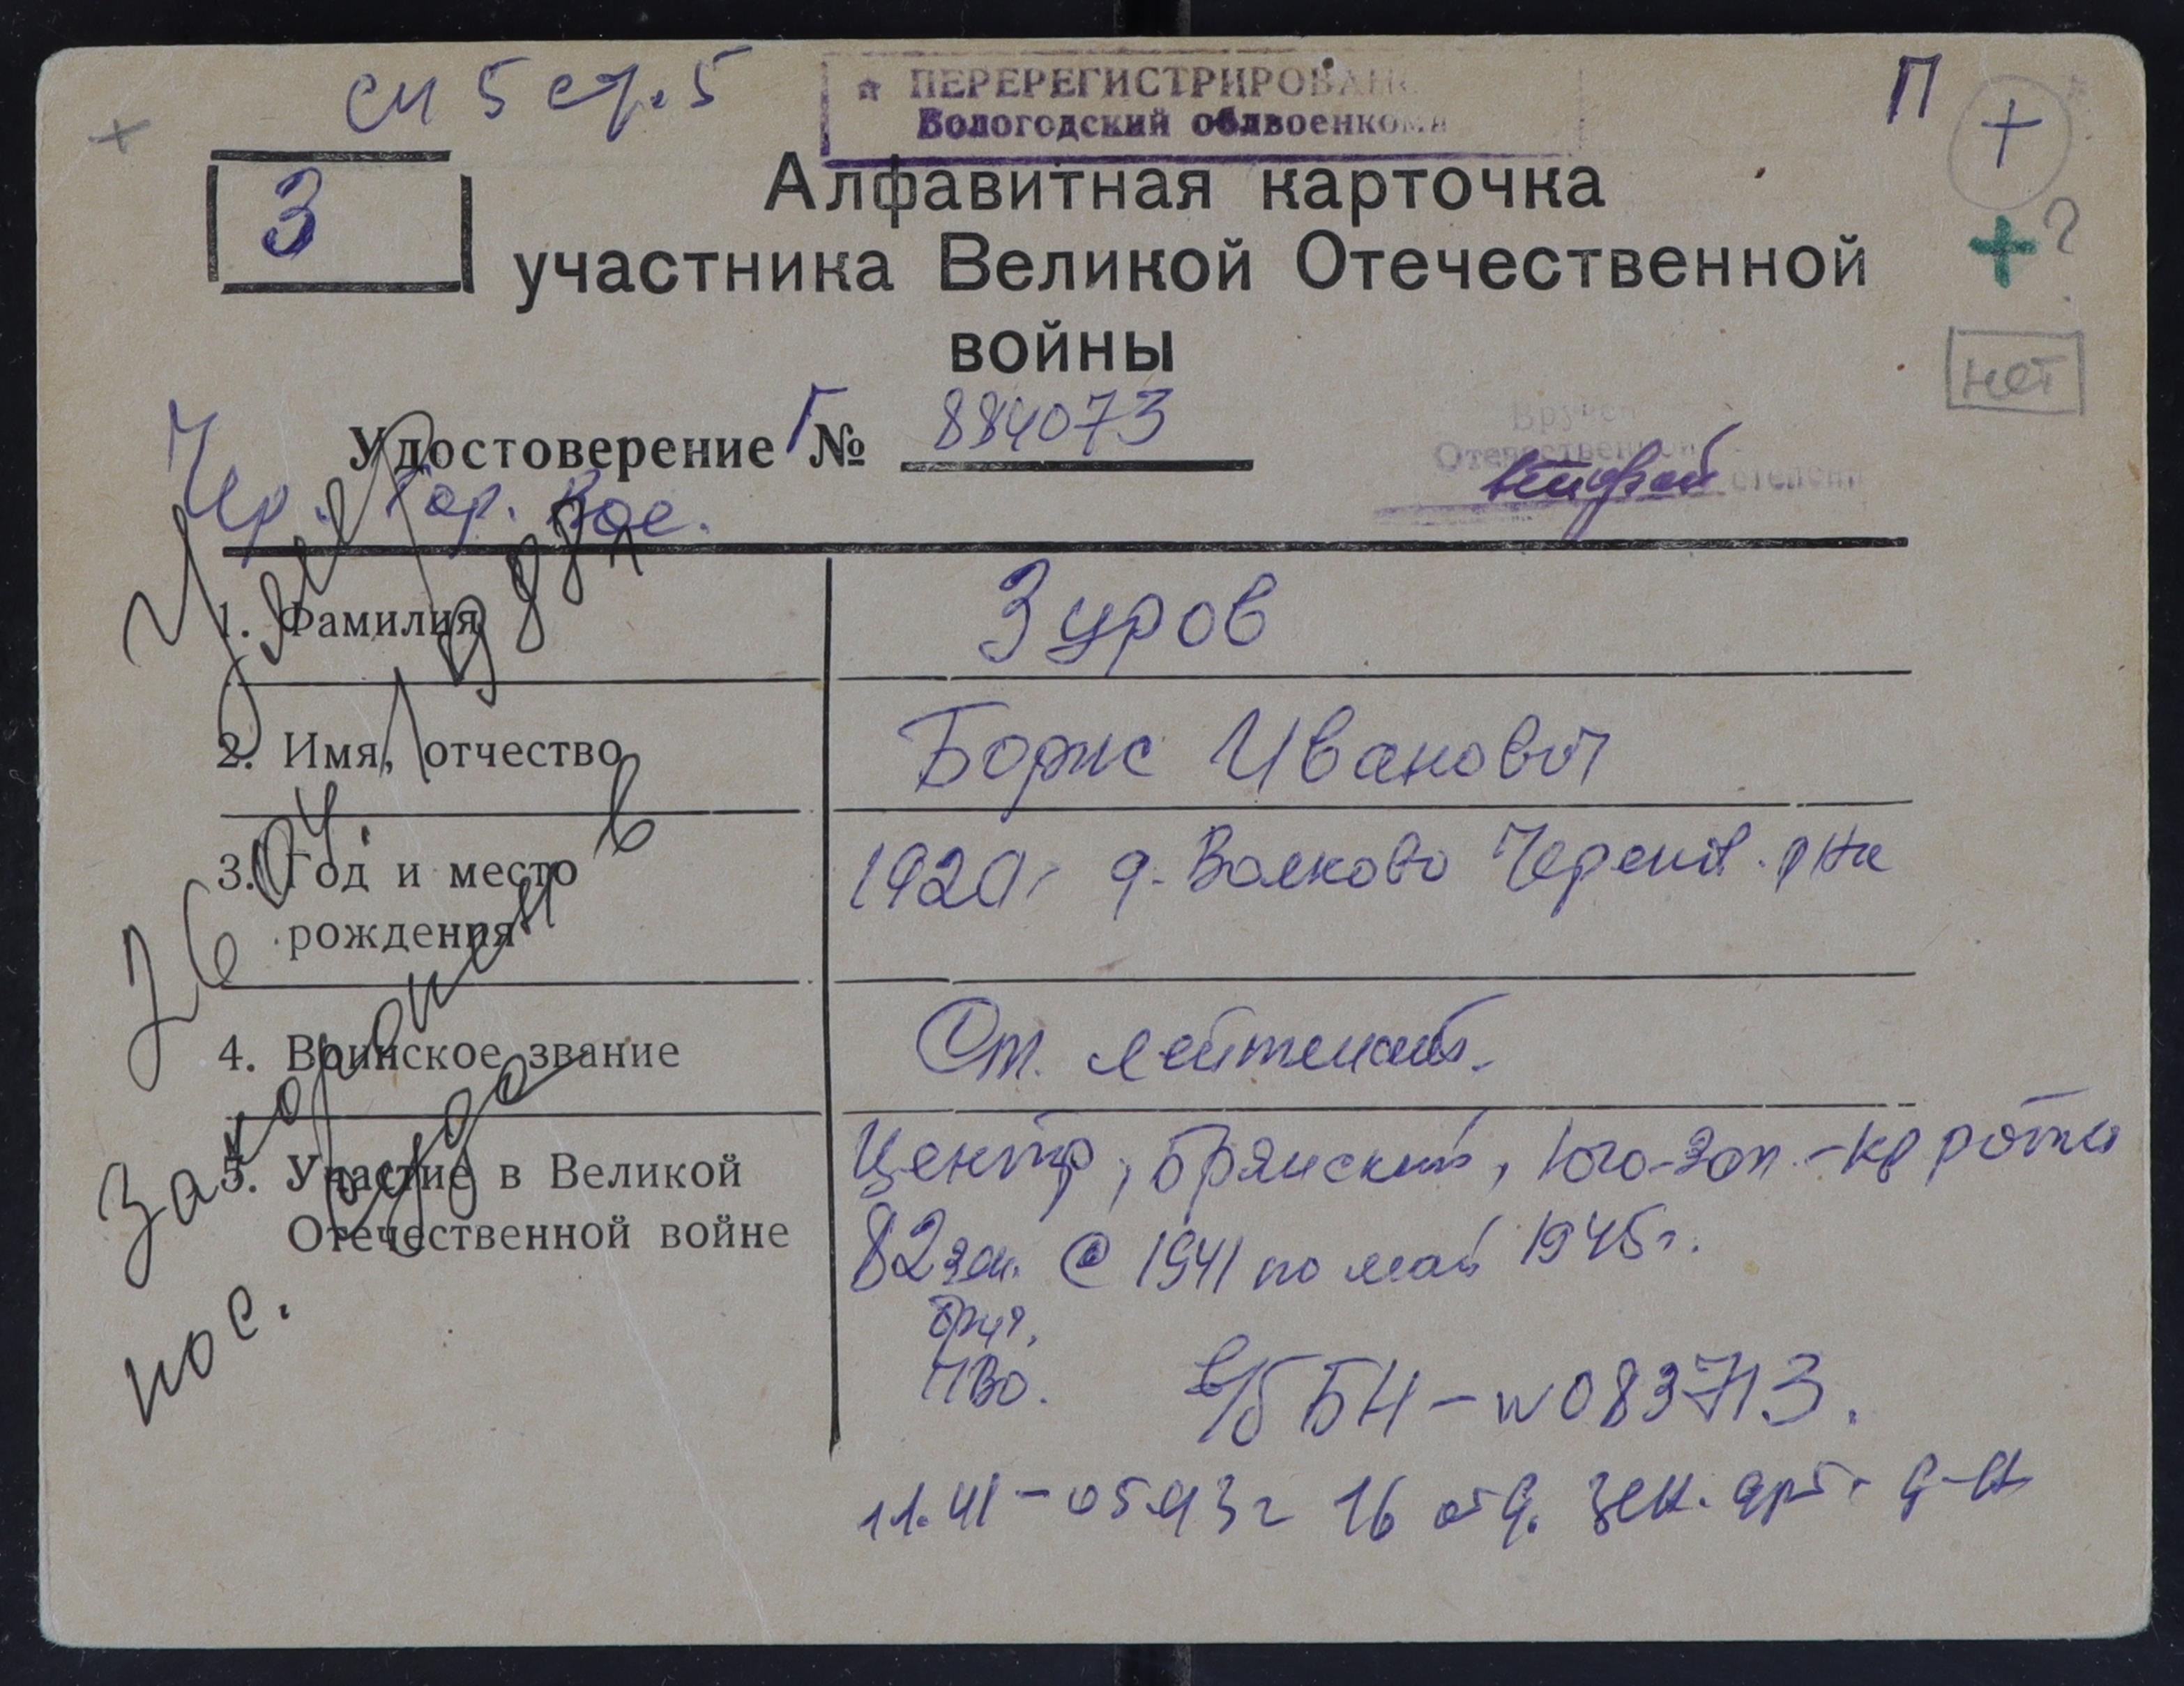 см 5 стр. 5
ПЕРЕРЕГИСТРИРОВАНО
Вологодский облвоенком
П
З
Алфавитная карточка
участника Великой Отечественной
войны
?
нет
Удостоверение Г № 884073
Вручен
Отечественной
второй степени
Чер. Гор. Вое.
1. Фамилия Зуров
2. Имя, отчество Борис Иванович
3. Год и место рождения 1920г д. Волково Черепов. р-на
4. Воинское звание Ст. лейтенант.
5. Участие в Великой Отечественной войне Центр, Брянский, Юго-Зап. - кр роты
82 зен. С 1941 по май 1945г.
бриг.
ПВО.
в/б БН - №083713.
11.41 - 05.43г 16 отд. зен. арт. д-н
Умер
26.04. 1988г
Захоронен в
пос.